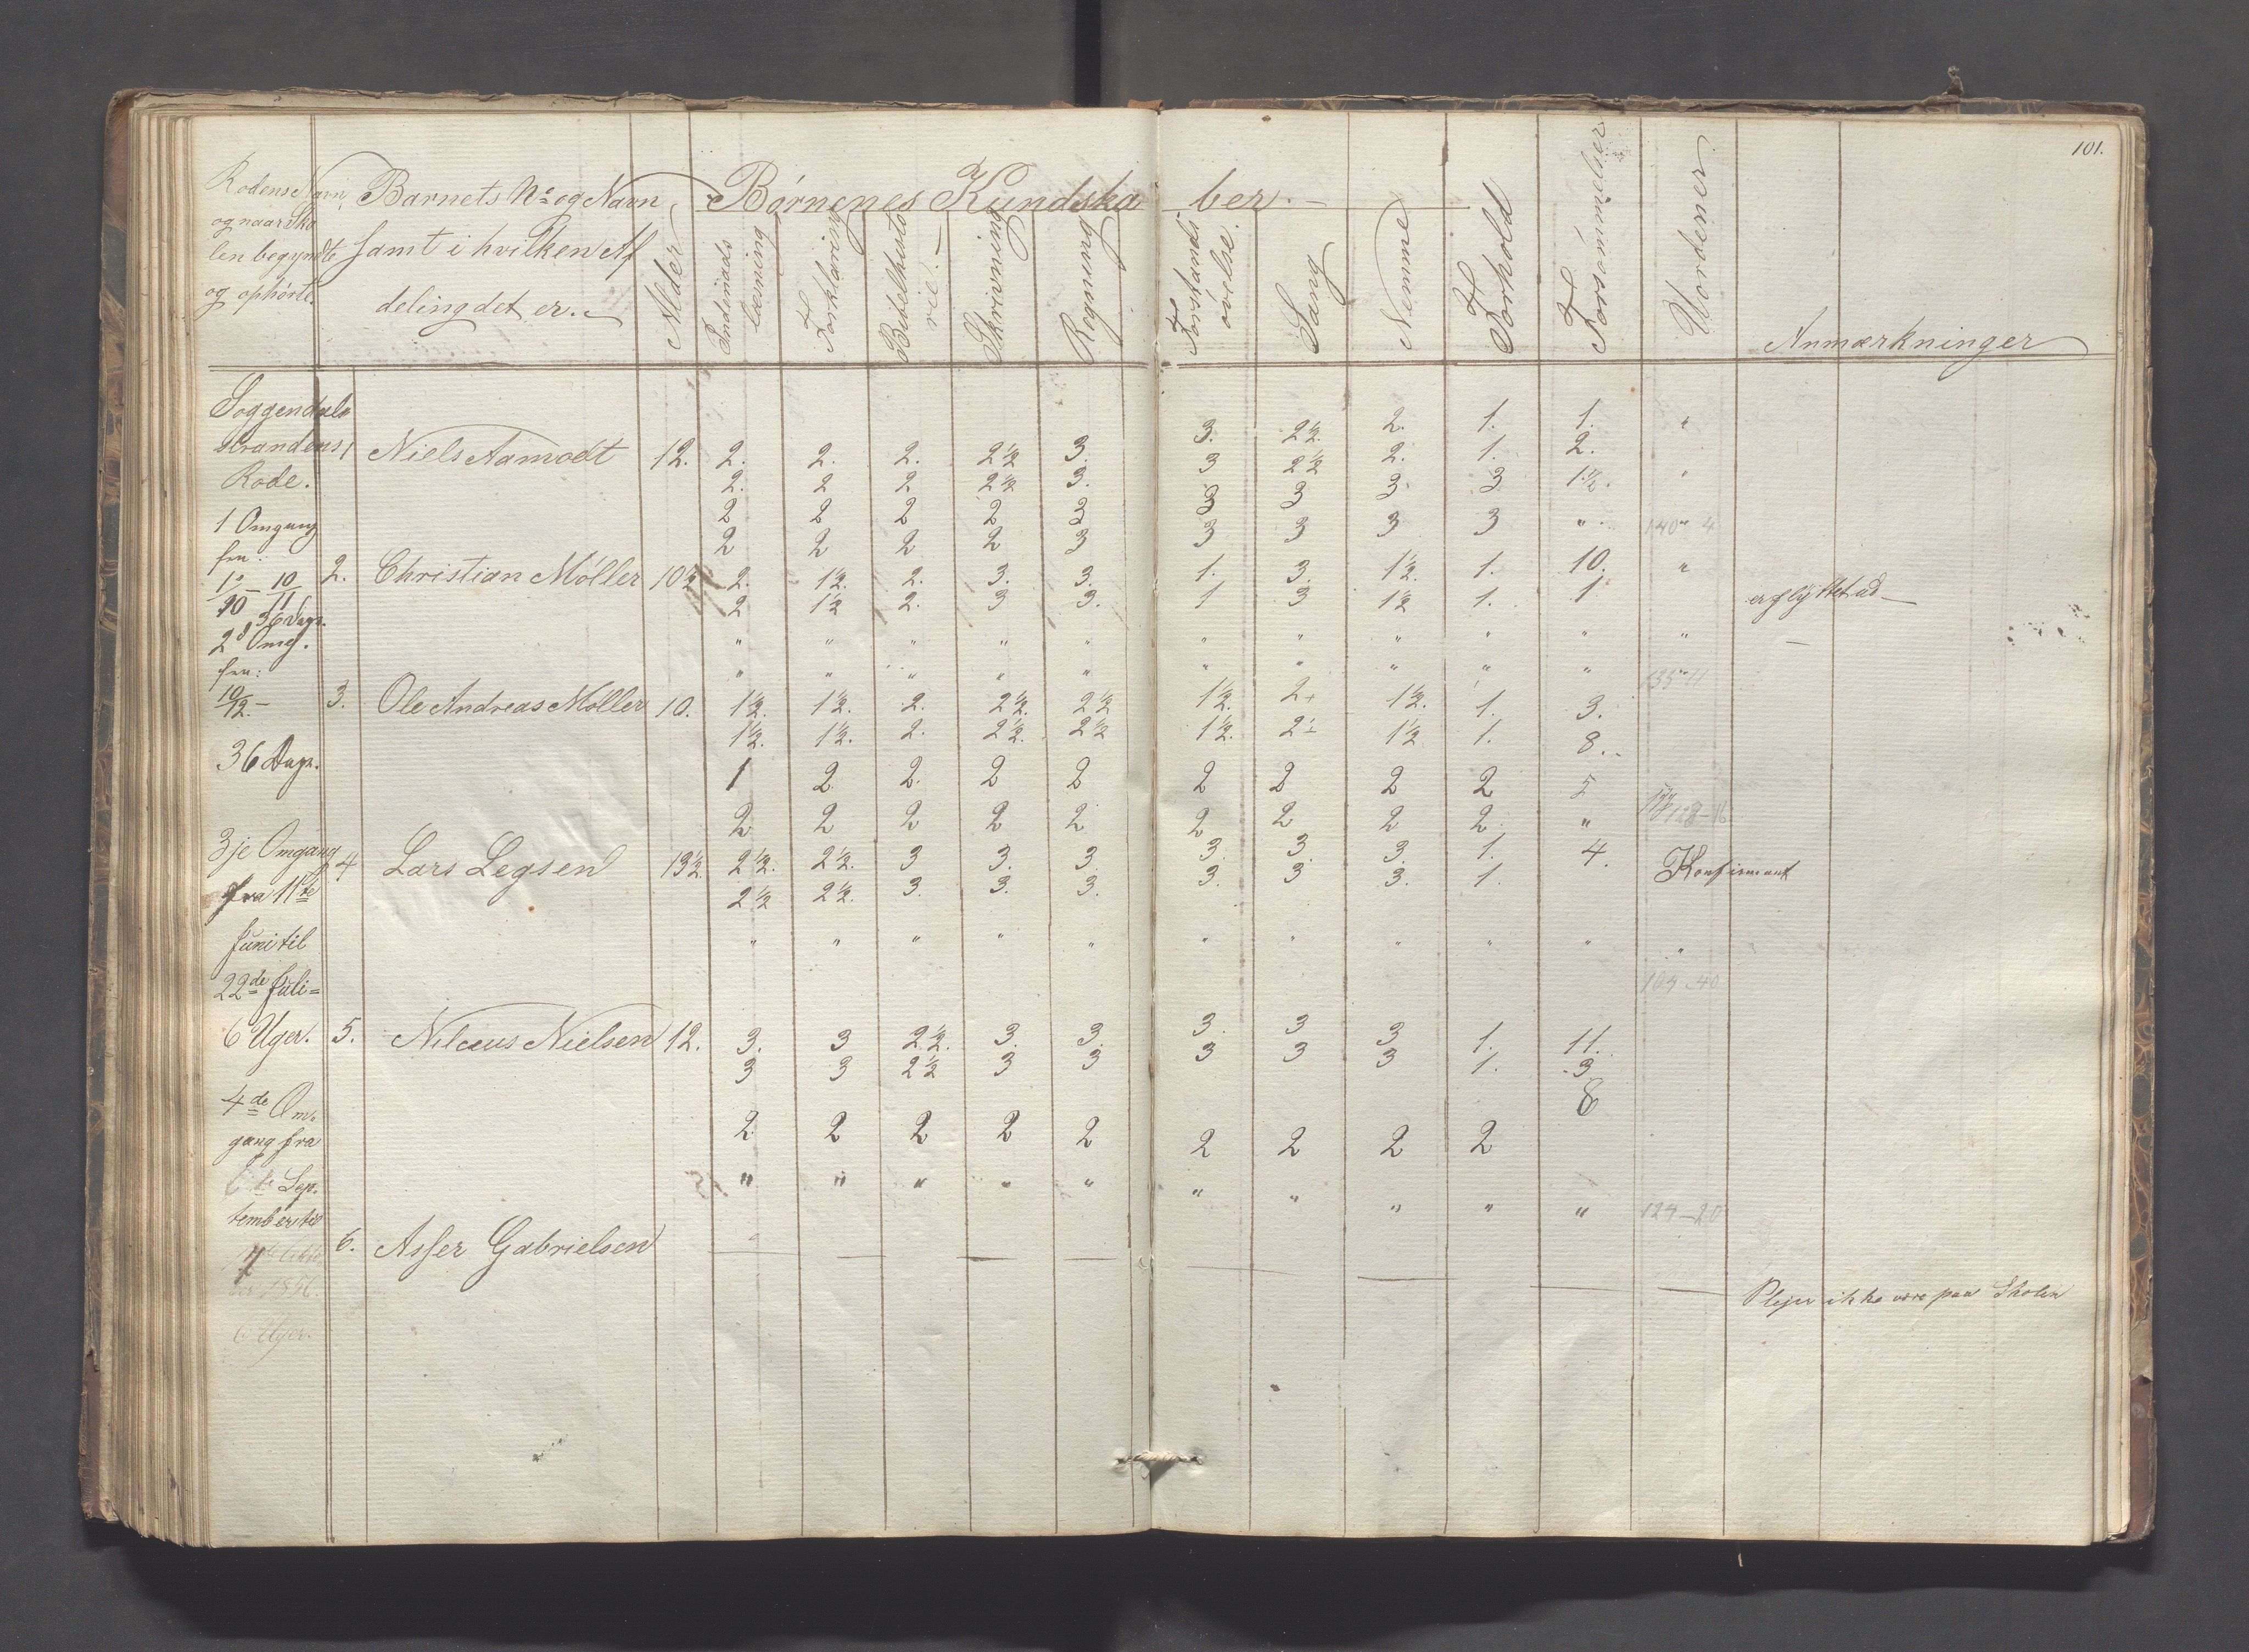 101.
Rodens Navn,
og naar Sko
len begyndte
og ophörte.
Barnets No og Navn
samt i hvilken Af
deling det er.
Alder
Börnenes Kundska ber.
Indenads læsning
Forklaring
Bibelhisto rie.
Skrivning
Regning
Forstands övelse.
Sang
Nemme
Forhold
Forsömmelser
Anmærkninger
Soggendals
strandens
Rode.
1 Omgang
fra:
36 Dage.
2d Omg.
fra:
10/12 -
36 Dage.
3je Omgang
fra 11te
Juni til
22de Juli =
6 Uger.
4de Om-
gang fra
te Sep.
tember til
6 Uger.
1 Niels Aamodt 12. 2. 2. 2. 2½ 3. 3. 2½. 2. 1. 1. "
2. 2 2 2½ 3. 3 2½ 2. 1. 2.
2 2 2 2 3 3 3 3 3 1½. "
2 2 2 2 3 3 3 3 3 " 140 " 4
2. Christian Möller 10½ 2. 1½. 2. 3. 3. 1. 3. 1½. 1. 10. "
2 1½ 2. 3 3. 1 3 1½ 1. 1 er flyttet ud —
" " " " " " " " " " " —
" " " " " " " " " " 135 " 11
3. Ole Andreas Möller 10. 1½. 1½. 2. 2½. 2½ 1½. 2+ 1½. 1. 3.
1½. 1½. 2. 2½. 2½ 1½. 2½ 1½ 1. 8.
1 2 2. 2 2 2 2 2 2 5
2 2 2 2 2 2 2 2 2 " 128 - 16
4 Lars Legsen 13½. 2½. 2½. 3 3. 3. 3. 3. 3. 1. 4. Konfirmant
2½ 2½. 3. 3. 3. 3. 3 3. 1.
" " " " " " " " " " "
104 - 40
5. Nilæus Nielsen 12. 3. 3 2½. 3. 3. 3. 3 3 1. 11.
3 3 2½ 3 3 3 3 3 1. 3
8
2 2 2 2 2 2 2 2 2
" " " " " " " " " " 124 - 20
6. Asser Gabrielsen — — — — — — — —
Plejer ikke være paa Skolen